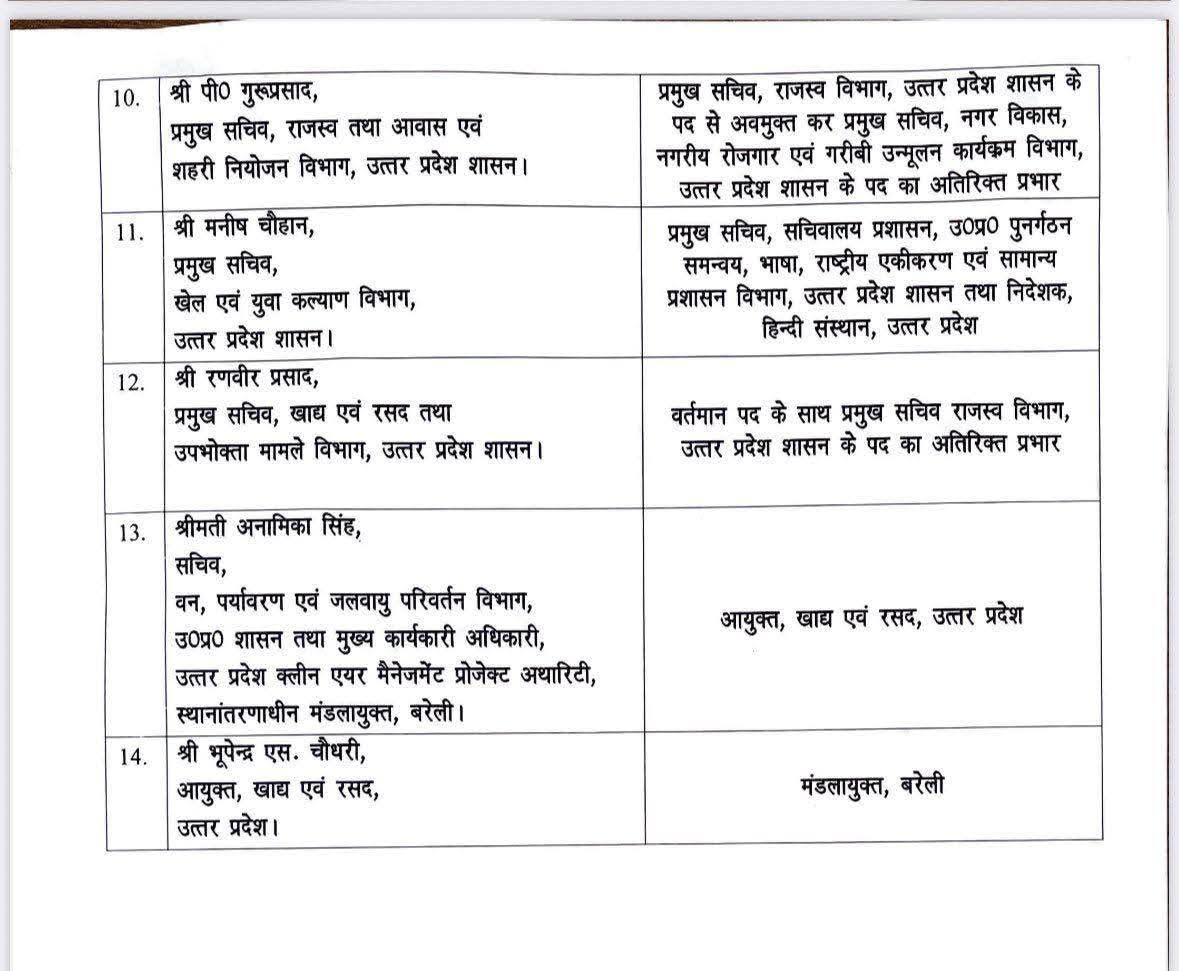 10.
श्री पी0 गुरूप्रसाद,
प्रमुख सचिव, राजस्व तथा आवास एवं
शहरी नियोजन विभाग, उत्तर प्रदेश शासन।
प्रमुख सचिव, राजस्व विभाग, उत्तर प्रदेश शासन के
पद से अवमुक्त कर प्रमुख सचिव, नगर विकास,
नगरीय रोजगार एवं गरीबी उन्मूलन कार्यक्रम विभाग,
उत्तर प्रदेश शासन के पद का अतिरिक्त प्रभार
11.
श्री मनीष चौहान,
प्रमुख सचिव,
खेल एवं युवा कल्याण विभाग,
उत्तर प्रदेश शासन।
प्रमुख सचिव, सचिवालय प्रशासन, उ0प्र0 पुनर्गठन
समन्वय, भाषा, राष्ट्रीय एकीकरण एवं सामान्य
प्रशासन विभाग, उत्तर प्रदेश शासन तथा निदेशक,
हिन्दी संस्थान, उत्तर प्रदेश
12.
श्री रणवीर प्रसाद,
प्रमुख सचिव, खाद्य एवं रसद तथा
उपभोक्ता मामले विभाग, उत्तर प्रदेश शासन।
वर्तमान पद के साथ प्रमुख सचिव राजस्व विभाग,
उत्तर प्रदेश शासन के पद का अतिरिक्त प्रभार
13.
श्रीमती अनामिका सिंह,
सचिव,
वन, पर्यावरण एवं जलवायु परिवर्तन विभाग,
उ0प्र0 शासन तथा मुख्य कार्यकारी अधिकारी,
उत्तर प्रदेश क्लीन एयर मैनेजमेंट प्रोजेक्ट अथारिटी,
स्थानांतरणाधीन मंडलायुक्त, बरेली।
आयुक्त, खाद्य एवं रसद, उत्तर प्रदेश
14.
श्री भूपेन्द्र एस. चौधरी,
आयुक्त, खाद्य एवं रसद,
उत्तर प्रदेश।
मंडलायुक्त, बरेली